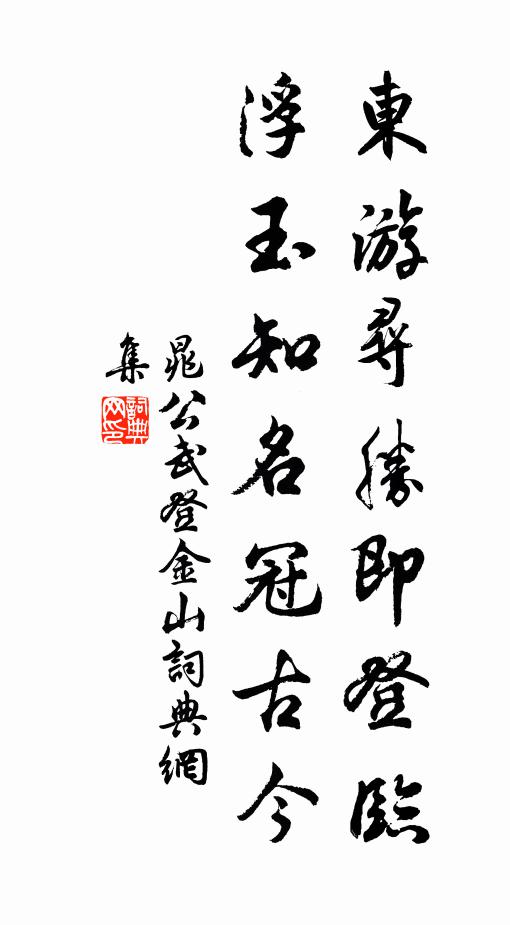 東游尋勝即登臨
浮玉知名冠古今
晁公武登金山詞典網
集
詞典網印